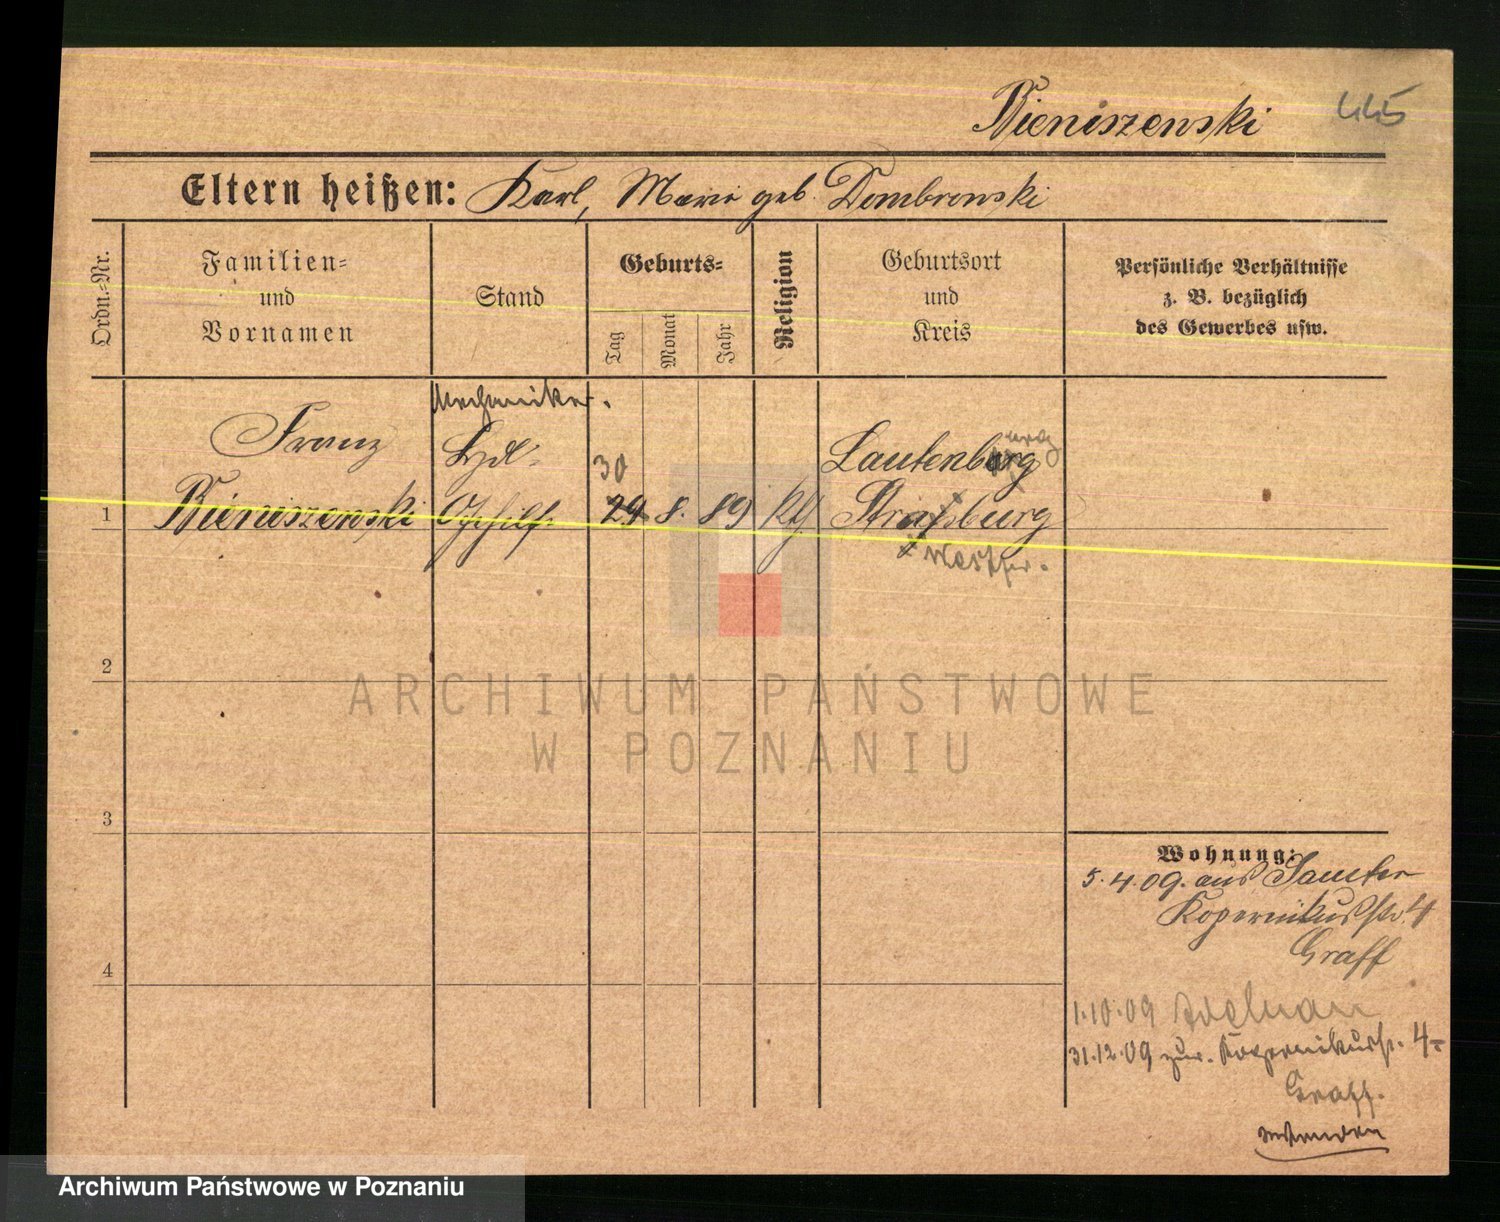 Bieniszewski 445
Eltern heißen: Karl, Marie geb. Dombrowski
Ordn.-Nr.
Familien-
und
Vornamen
Stand
Geburts-
Tag
Monat
Jahr
Religion
Geburtsort
und
Kreis
Persönliche Verhältnisse
z. B. bezüglich
des Gewerbes usw.
Mechaniker.
Franz
30
Lautenburg
1 Bieniszewski 29 8. 89 Kth Strasburg
Westpr.
2
ARCHIWUM PAŃSTWOWE
W POZNANIU
3
Wohnung:
5.4.09. aus Samter
Kopernikusstr. 4
Graff
4
1.10.09
31.12.09 zur. Kopernikusstr. 4
Graff.
wenden
Archiwum Państwowe w Poznaniu